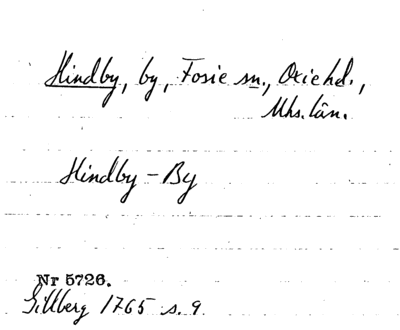 Hindby, by, Fosie sn., Oxie hd.,
Mhs. län.
Hindby – By
Nr 5726.
Gillberg 1765 s. 9.